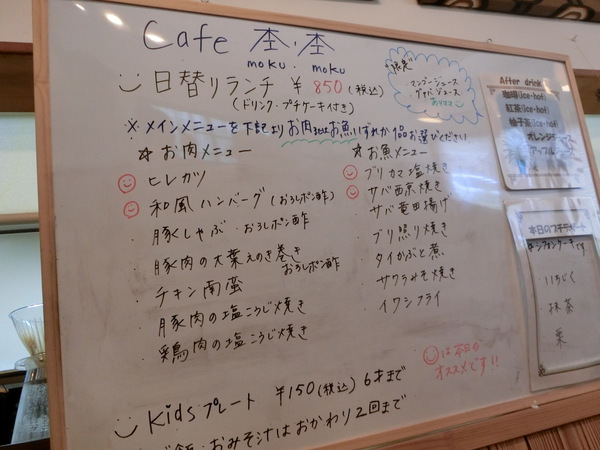 Cafe 杢・杢
moku . moku
日替りランチ ¥850(税込)
(ドリンク・プチケーキ付き)
"限定"
・マンゴージュース
・グァバジュース
おススメ
※メインメニューを下記よりお肉又はお魚いずれか1品お選びください
☆お肉メニュー
・ヒレカツ
・和風ハンバーグ(おろしポン酢)
・豚しゃぶ・おろしポン酢
・豚肉の大葉えのき巻き
おろしポン酢
・チキン南蛮
・豚肉の塩こうじ焼き
・鶏肉の塩こうじ焼き
☆お魚メニュー
・ブリカマ塩焼き
・サバ西京焼き
・サバ竜田揚げ
・ブリ照り焼き
・タイかぶと煮
・サワラみそ焼き
・イワシフライ
は本日の
オススメです!!
Kidsプレート ¥150(税込) 6才まで
ご飯・おみそ汁はおかわり2回まで
After drink
珈琲(ice・hot)
紅茶(ice・hot)
柚子茶(ice・hot)
オレンジジュース
アップルジュース
本日のプチデザート
シフォンケーキです
いちじく
抹茶
栗